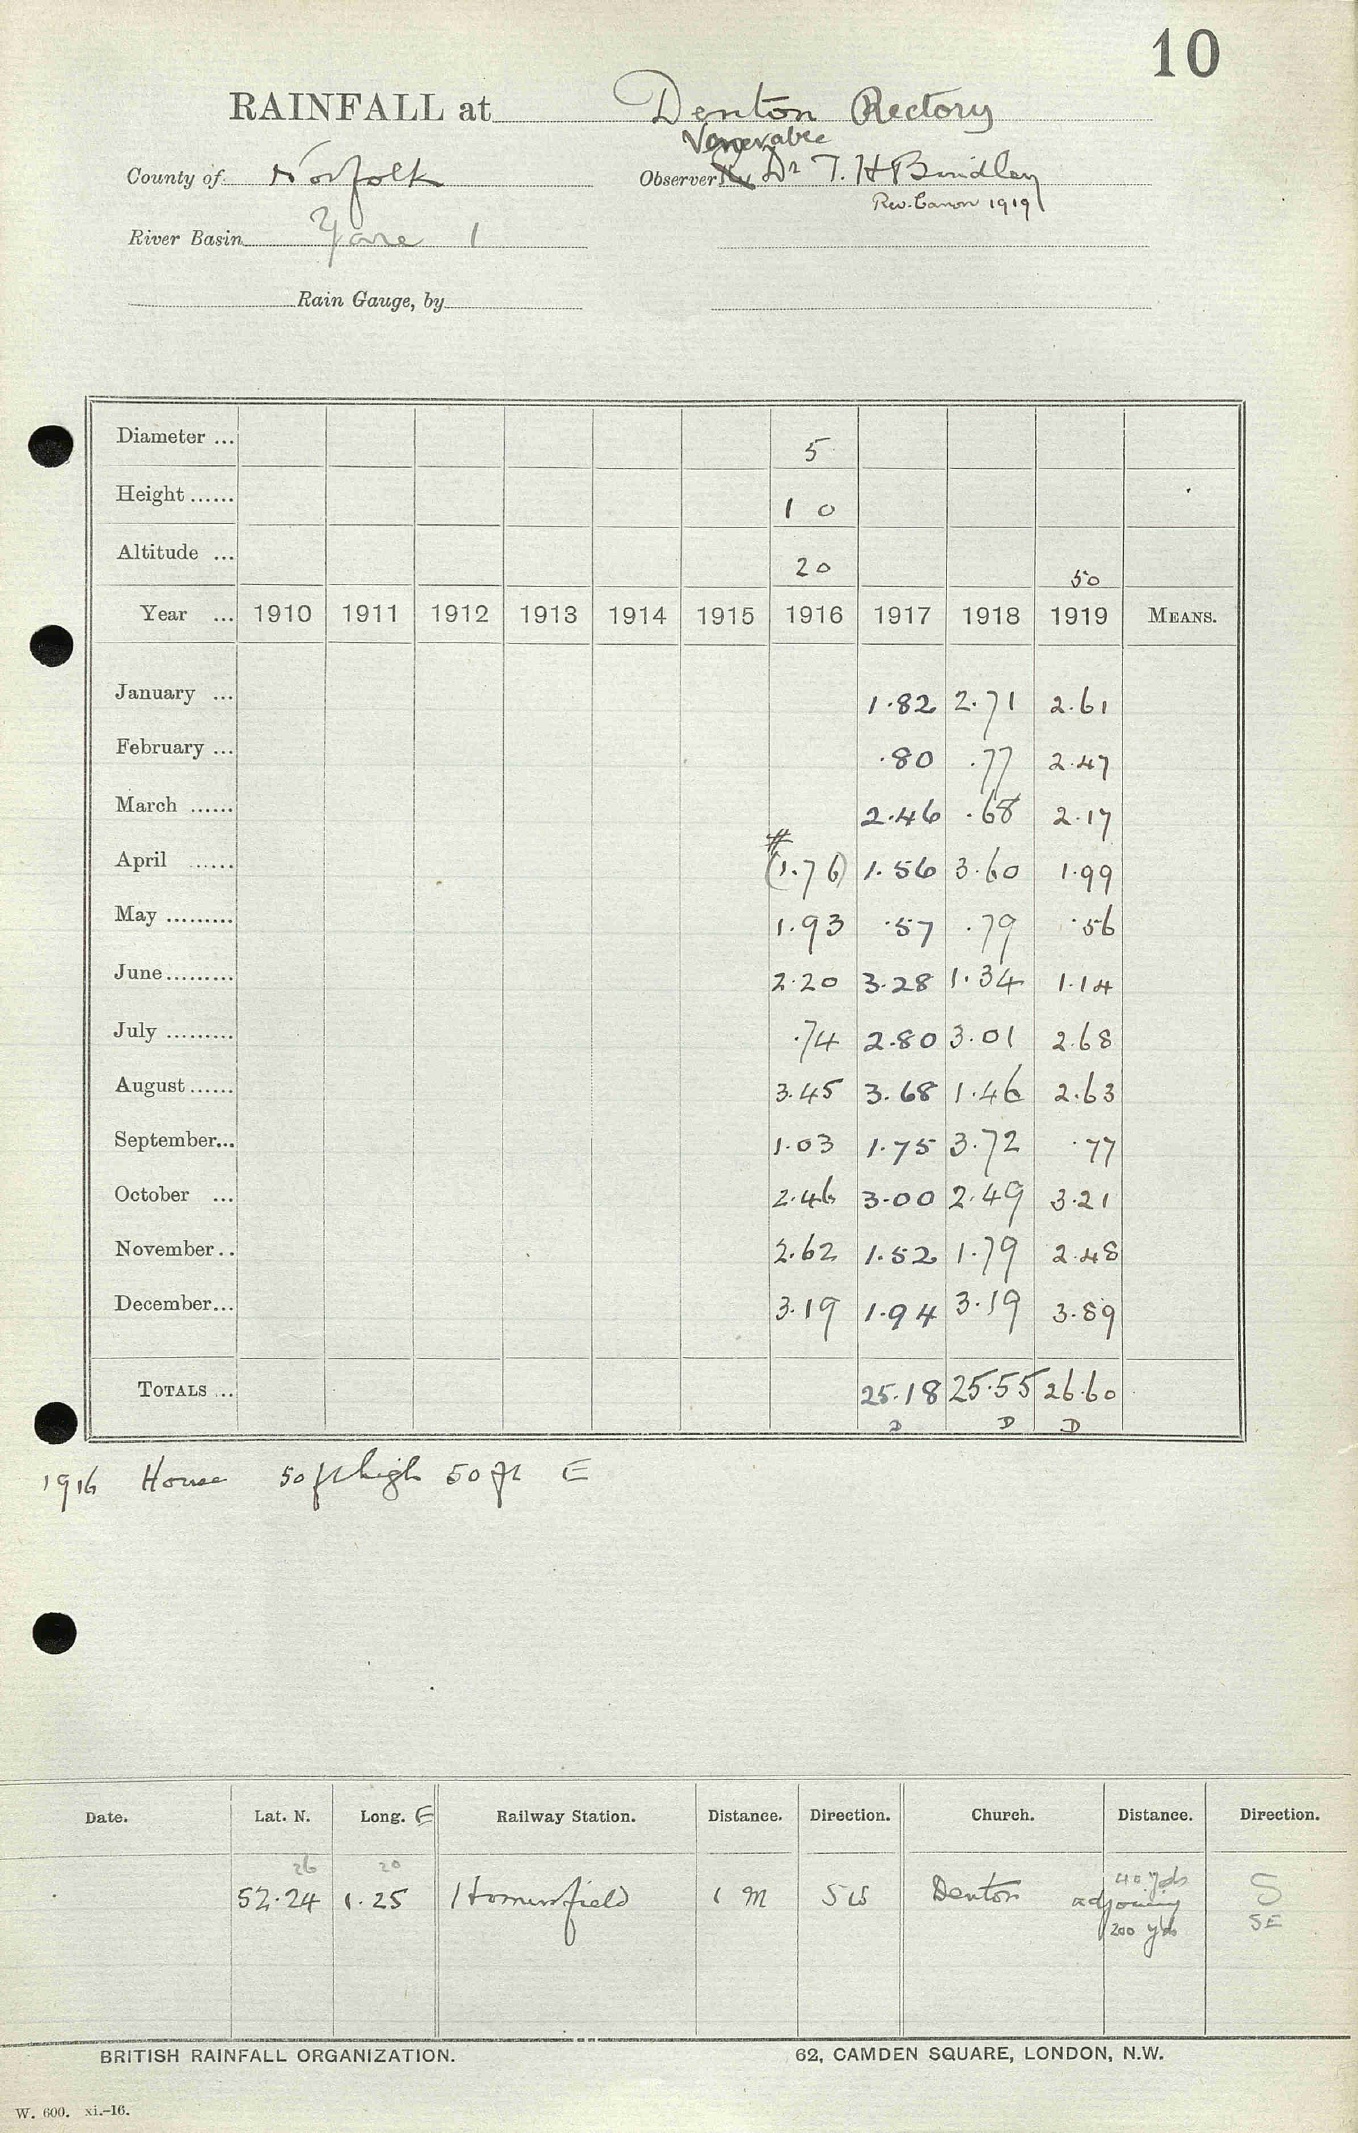 10
RAINFALL at Denton Rectory
Venerable
County of Norfolk Observer Dr T. H Bindley
Rev. Canon 1919
River Basin Yare 1
Rain Gauge, by
Diameter ... 5
Height ...... 1 0
Altitude ... 20 50
Year ... 1910 1911 1912 1913 1914 1915 1916 1917 1918 1919 MEANS.
January ... 1.82 2.71 2.61
February ... .80 .77 2.47
March ...... 2.46 .68 2.17
#
April ...... (1.76) 1.56 3.60 1.99
May ......... 1.93 .57 .79 .56
June ......... 2.20 3.28 1.34 1.14
July ......... .74 2.80 3.01 2.68
August ...... 3.45 3.68 1.46 2.63
September... 1.03 1.75 3.72 .77
October ... 2.46 3.00 2.49 3.21
November .. 2.62 1.52 1.79 2.48
December... 3.19 1.94 3.19 3.89
TOTALS ... 25.18 25.55 26.60
D D D
1916 House 50 ft high 50 ft E
Date. Lat. N. Long. E Railway Station. Distance. Direction. Church. Distance. Direction.
26 20 40 yds
52.24 1.25 Homersfield 1 m SW Denton adjoining S
200 yds SE
BRITISH RAINFALL ORGANIZATION. 62, CAMDEN SQUARE, LONDON, N.W.
W. 600. xi.-16.